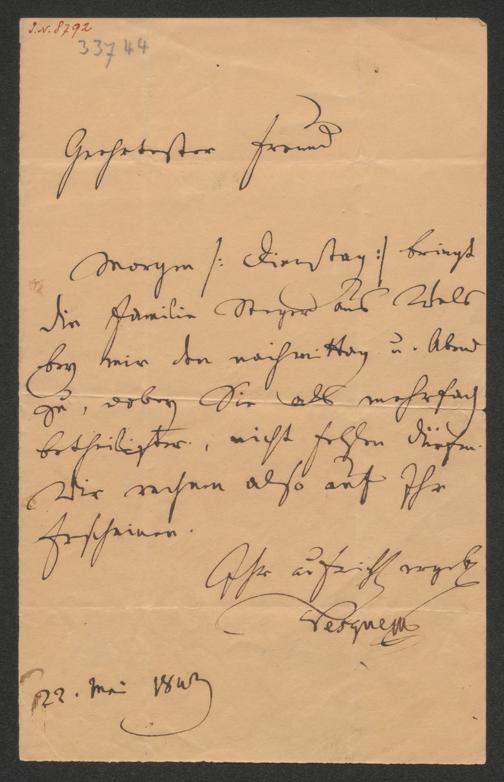 I.N. 8792
33744
Geehrtester Freund
Morgen /: Dienstag :/ bringt
die Familie Steger aus Wels
bey mir den nachmittag u. Abend
zu, wobey Sie als mehrfach
betheiligter, nicht fehlen dürfen.
Wir rechnen also auf Ihr
Erscheinen.
Ihr aufricht ergeb
Vesque
22. Mai